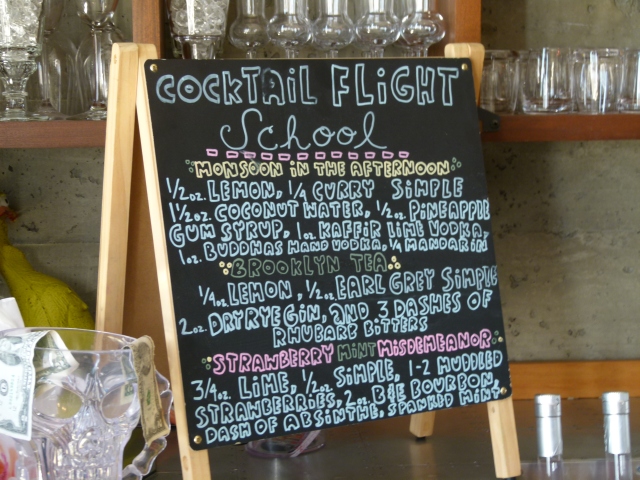 COCKTAIL FLIGHT
School
MONSOON IN THE AFTERNOON
1/2 oz. LEMON, 1/4 CURRY SIMPLE
1 1/2 oz. COCONUT WATER, 1/2 oz. PINEAPPLE
GUM SYRUP, 1 oz. KAFFIR LIME VODKA,
1 oz. BUDDHAS HAND VODKA, 1/4 MANDARIN
BROOKLYN TEA
1/4 oz. LEMON, 1/2 oz. EARL GREY SIMPLE
2 oz. DRY RYE GIN, AND 3 DASHES OF
RHUBARB BITTERS
STRAWBERRY MINT MISDEMEANOR
3/4 oz. LIME, 1/2 oz. SIMPLE, 1-2 MUDDLED
STRAWBERRIES, 2 oz. B&E BOURBON,
DASH OF ABSINTHE, SPANKED MINT